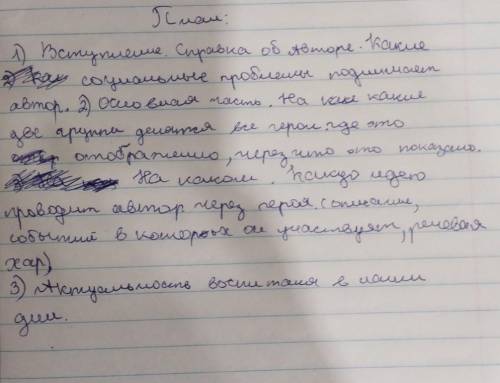 План:
1) Вступление. Справка об авторе. Какие
социальные проблемы поднимает
автор. 2) Основная часть. На как какие
две группы делятся все герои где это
отображенно, через что это показано.
На каком. Какую идею
проводит автор через героя. (описание,
событий в которых он участвует, речевая
хар)
3) Актуальность воспитания в наши
дни.